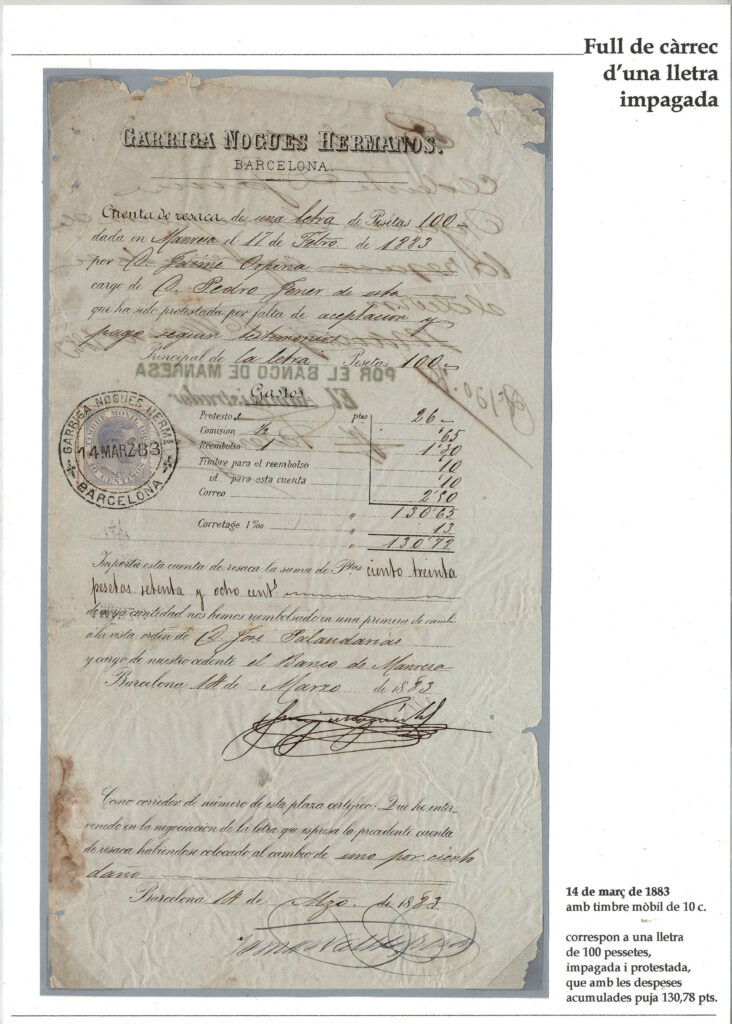 Full de càrrec
d'una lletra
impagada
GARRIGA NOGUES HERMANOS.
BARCELONA.
Cuenta de resaca de una letra de Pesetas 100
dada en Manresa el 17 de Febro de 1883
por D. Jaime
cargo de D. Pedro Jener de esta
que ha sido protestada por falta de aceptacion y
pago segun testimonio
Principal de la letra Pesetas 100
POR EL BANCO DE MANRESA
El Administrador
Gastos.
Protesto s ptas 26
Comision ½ '65
Reembolso 1 1'30
Timbre para el reembolso '10
id para esta cuenta '10
Correo 2'50
" 130'65
Corretage 1 ‰ " 13
" 130'78
GARRIGA NOGUES HERMS
TIMBRE MOVIL
14 MARZ 83
10 CENTIMOS
BARCELONA
Importa esta cuenta de resaca la suma de Ptas ciento treinta
pesetas setenta y ocho cents
de cuya cantidad nos hemos reembolsado en una primera de cambio
a la vista, orden de D. José Palaudarias
y cargo de nuestro cedente el Banco de Manresa
Barcelona 14 de Marzo de 1883.
Como corredor de número de esta plaza certifico: Que he inter-
venido en la negociacion de la letra que espresa la precedente cuenta
de resaca habiéndose colocado al cambio de uno por ciento
daño
Barcelona 14 de Mzo. de 1883.
14 de març de 1883
amb timbre mòbil de 10 c.
correspon a una lletra
de 100 pessetes,
impagada i protestada,
que amb les despeses
acumulades puja 130,78 pts.